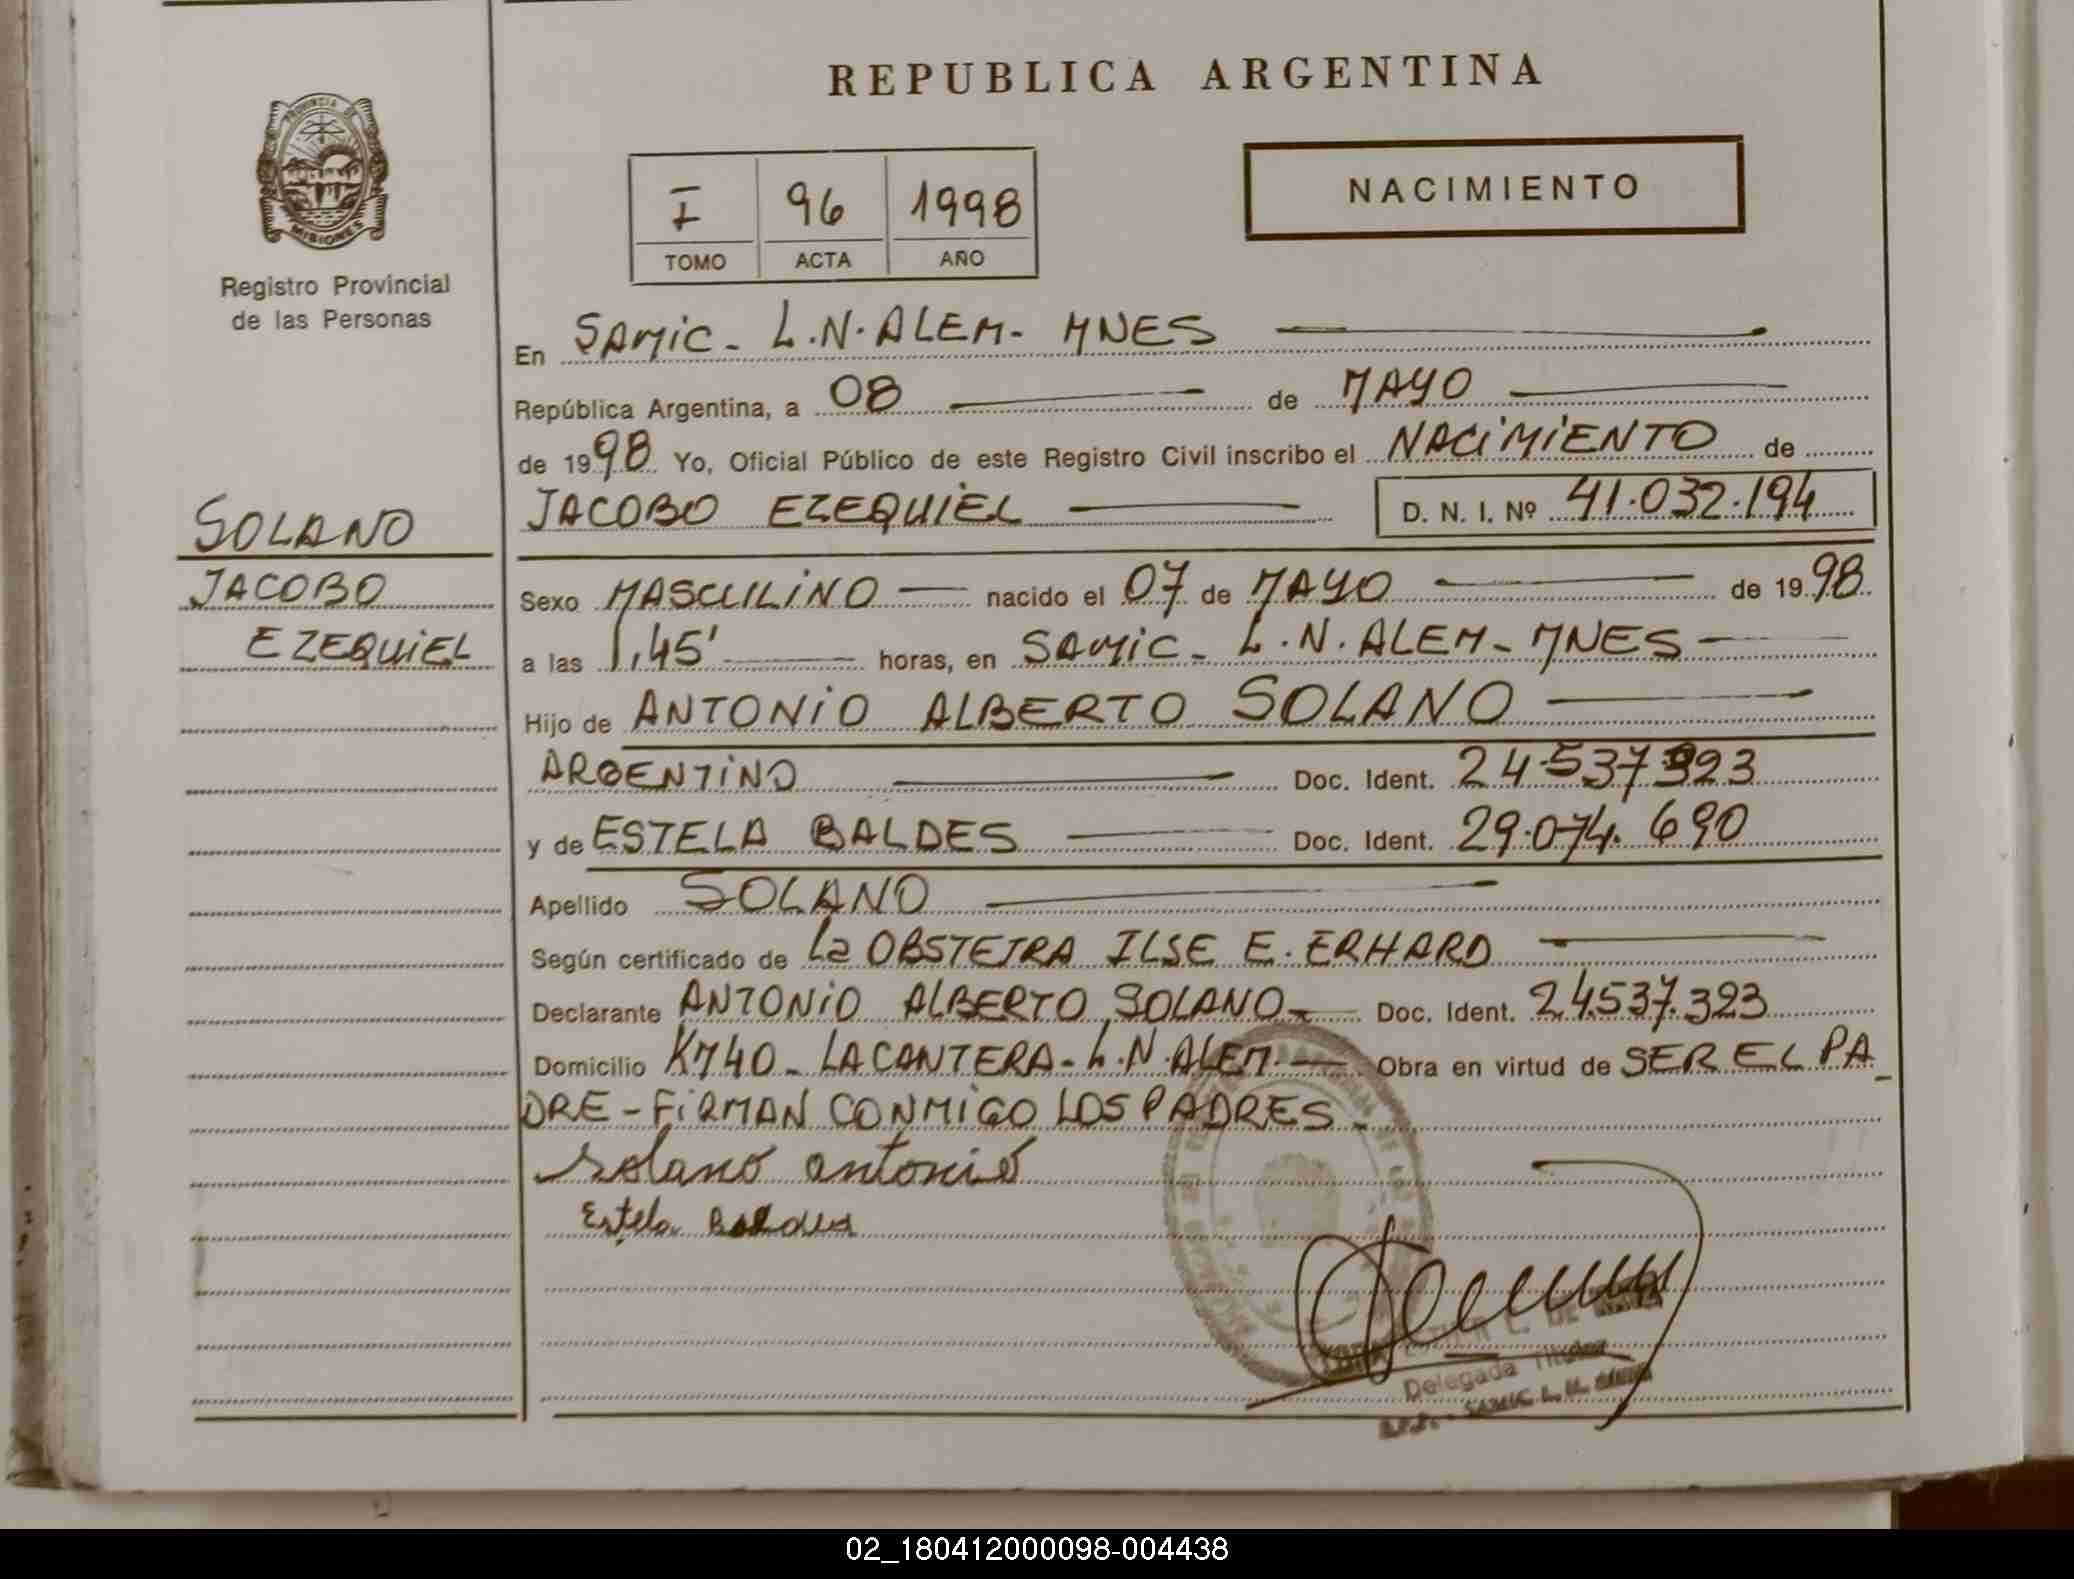 REPUBLICA ARGENTINA
PROVINCIA DE
MISIONES
Registro Provincial
de las Personas
I 96 1998
TOMO ACTA AÑO
NACIMIENTO
En SAMiC - L.N. ALEM - MNES
República Argentina, a 08 de MAYO
de 1998 Yo, Oficial Público de este Registro Civil inscribo el NACiMiENTO de
JACOBO EZEQUiEL D. N. I. Nº 41.032.194
SOLANO
JACOBO
EZEQUiEL
Sexo MASCULiNO nacido el 07 de MAYO de 1998
a las 1,45' horas, en SAMiC - L.N. ALEM - MNES
Hijo de ANTONiO ALBERTO SOLANO
ARGENTiNO Doc. Ident. 24.537.323
y de ESTELA BALDES Doc. Ident. 29.074.690
Apellido SOLANO
Según certificado de La OBSTETRA ILSE E. ERHARD
Declarante ANTONiO ALBERTO SOLANO Doc. Ident. 24.537.323
Domicilio KM40 - LA CANTERA - L.N. ALEM. Obra en virtud de SER EL PA-
DRE - FiRMAN CONMiGO LOS PADRES.
Solano Antonio
Estela Baldes
Delegada Titular
02_180412000098-004438